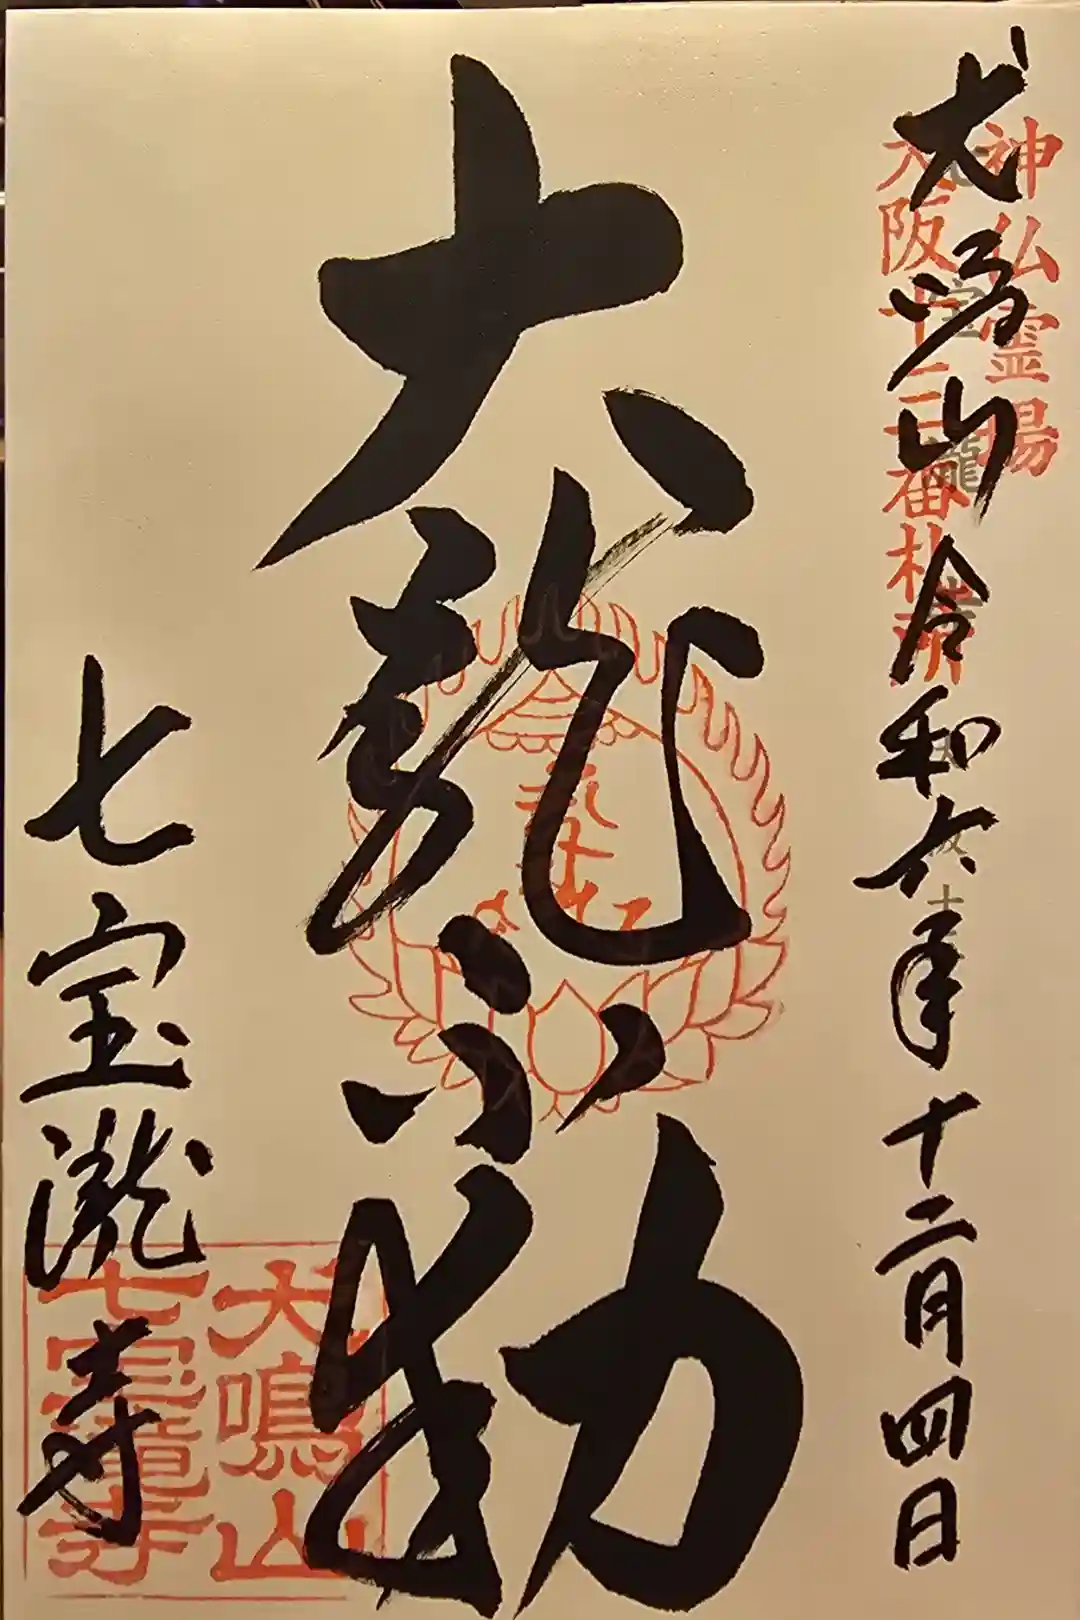 神仏霊場
大阪十二番札所
犬鳴山 令和六年十二月四日
大龍不動
七宝瀧寺
犬鳴山
七宝瀧寺